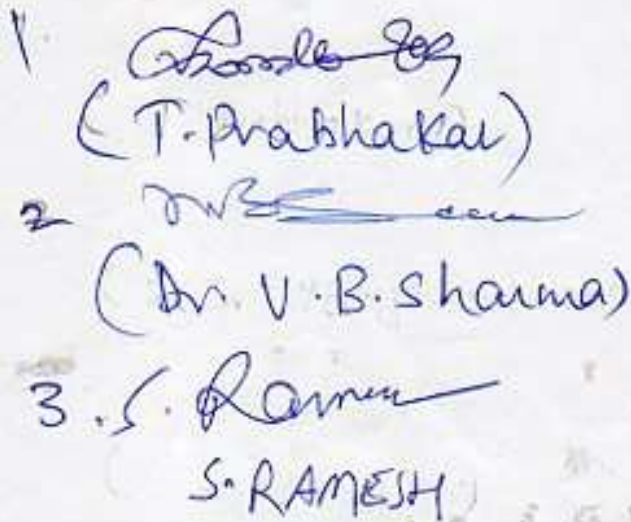 1.
(T. Prabhakar)
2
(Dr. V. B. Sharma)
3. S. Ramesh
S. RAMESH